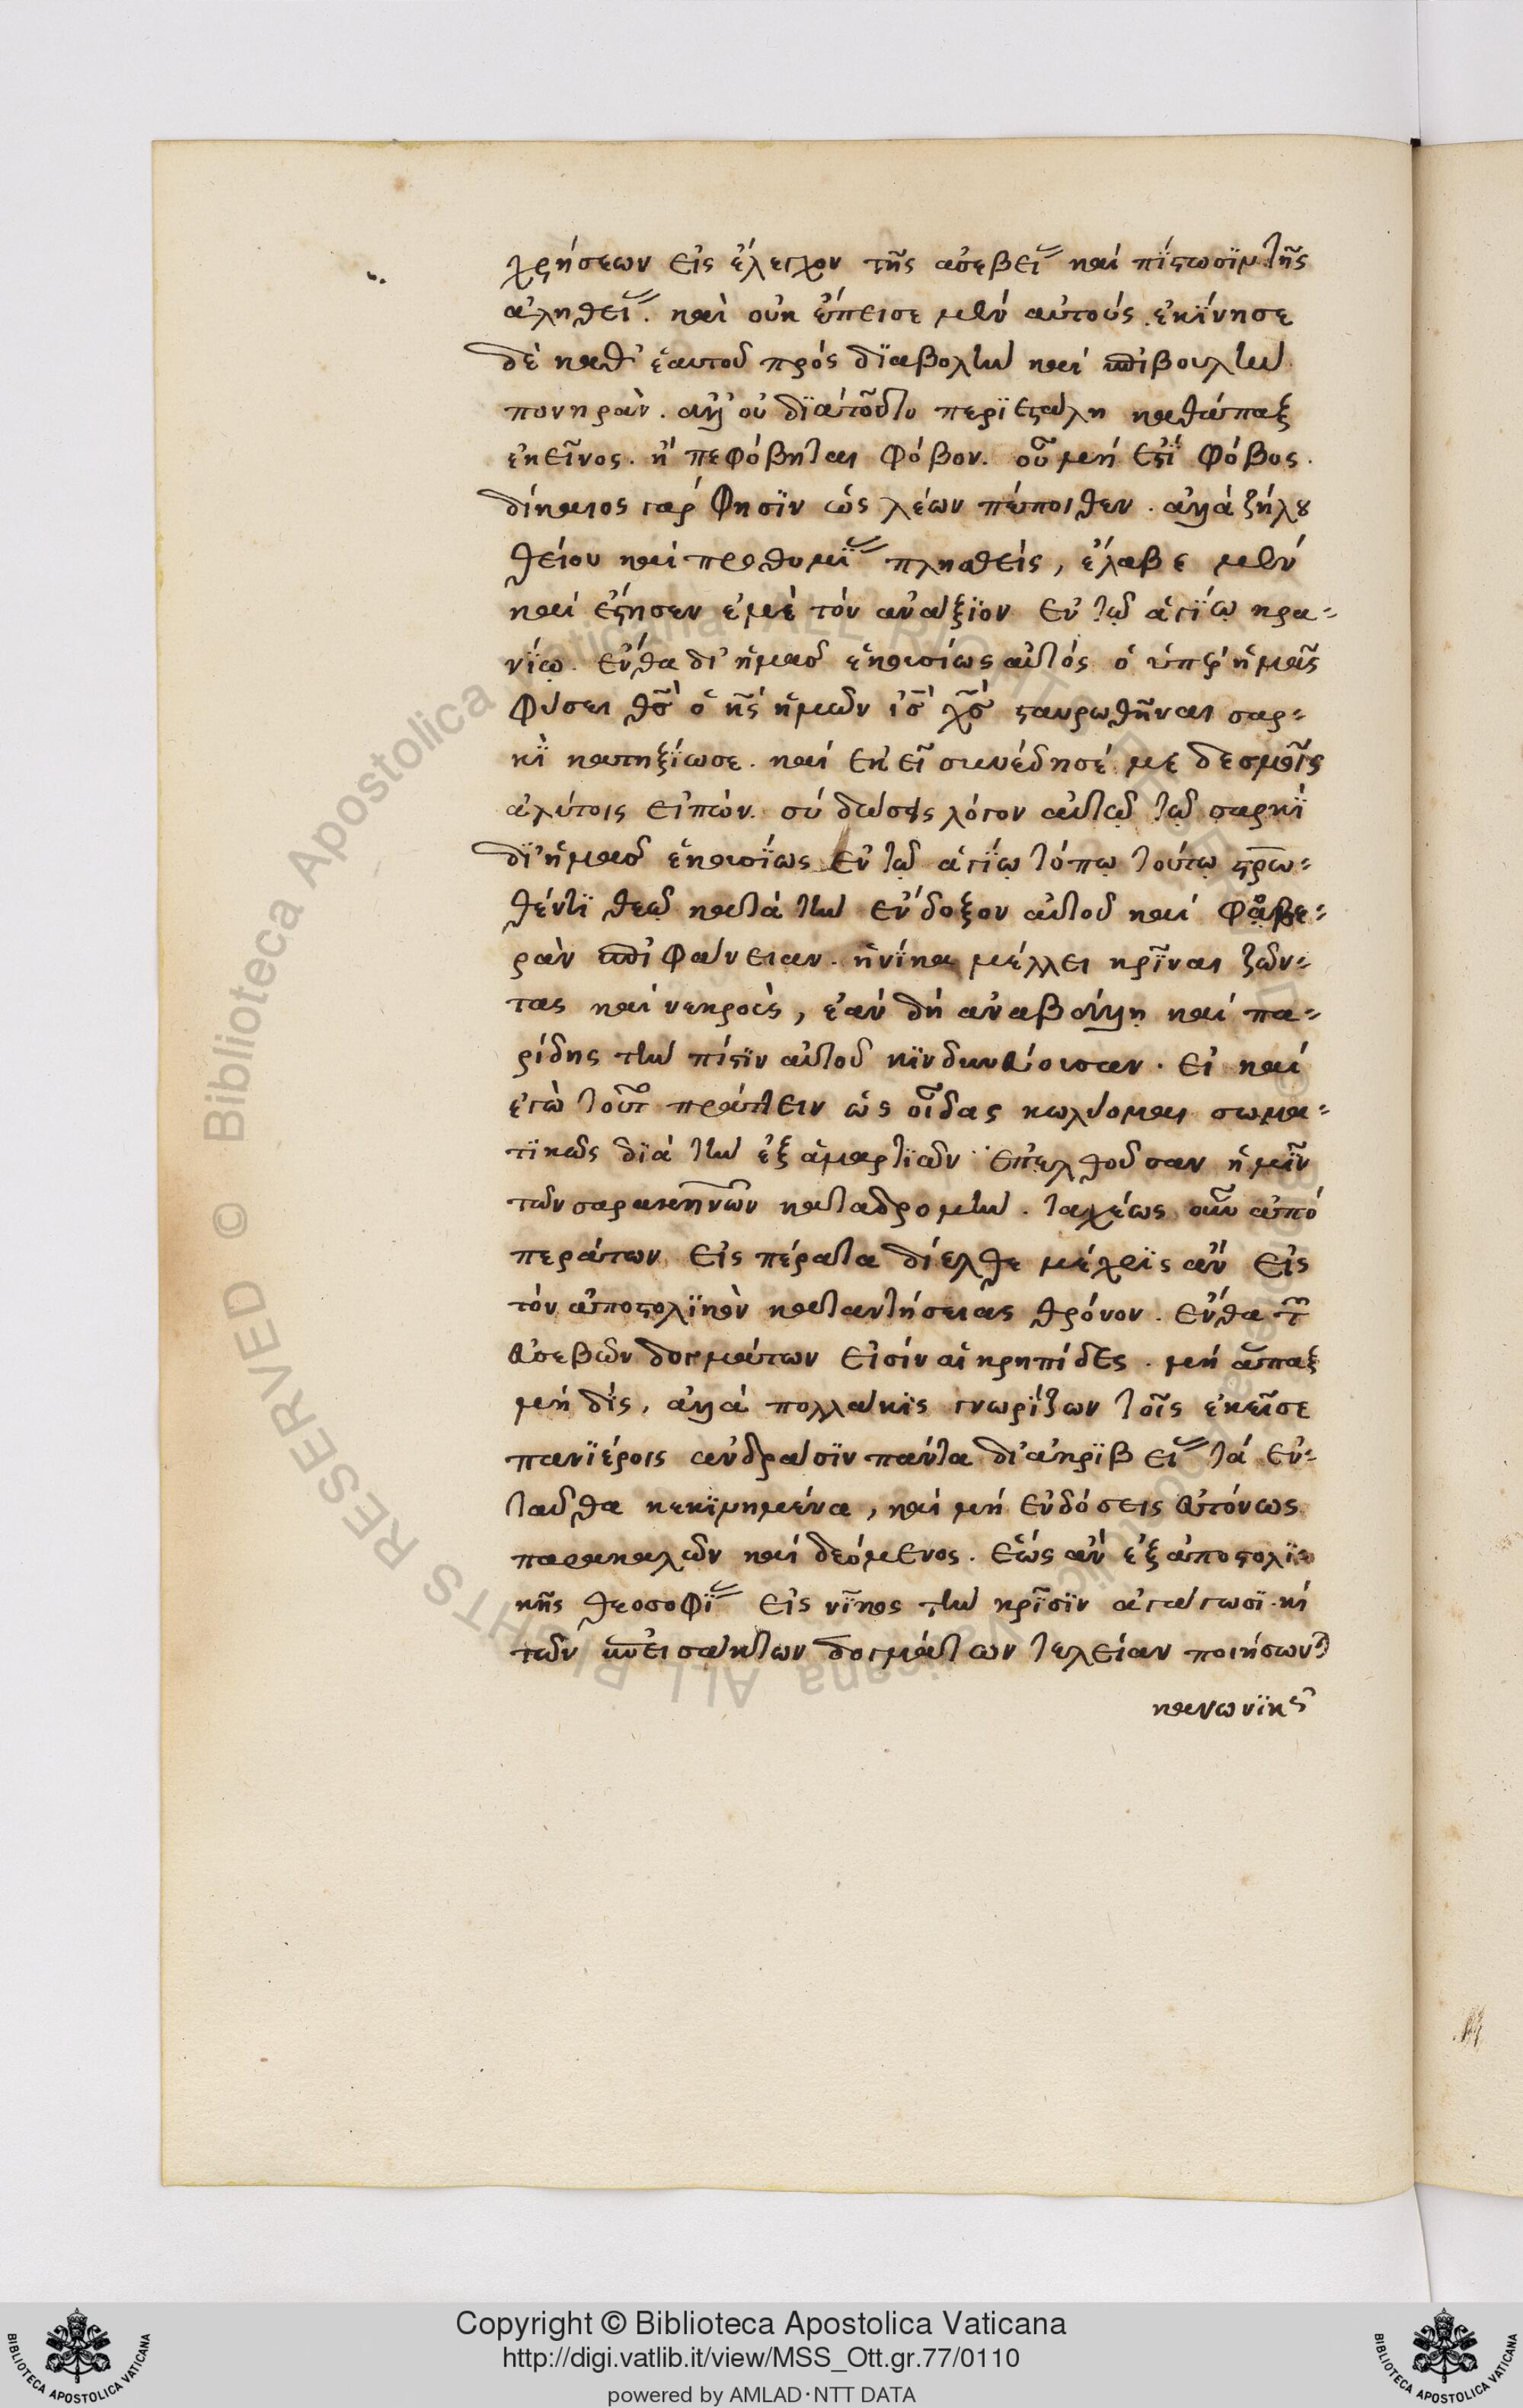 χρήσεων εἰς ἔλεγχον τῆς ἀσεβεί καὶ πίστωσϊν τῆς
ἀληθεί. καὶ οὐκ ἔπεισε μὲν αὐτούς. ἐκΐνησε
δὲ καθ' ἑαυτοῦ πρὸς δϊαβολὴν καὶ ἐπιβουλὴν
πονηράν. ἀλλ' οὐ δϊατοῦτο περϊεστάλη καθάπαξ
ἐκεῖνος. ἢ πεφόβηται φόβον. οὗ μή ἐστϊ φόβος.
δίκαιος γάρ φησϊν ὡς λέων πέποιθεν. ἀλλὰ ζήλου
θείου καὶ προθυμϊ πλησθείς, ἔλαβε μὲν
καὶ ἔστησεν ἐμὲ τὸν ἀνάξϊον ἐν τῷ ἁγΐῳ κρα-
νίῳ. ἔνθα δι' ἡμᾶς ἑκουσίως αὐτὸς ὁ ὑπὲρ ἡμᾶς
φύσει θς ὁ κς ἡμῶν ις χς σταυρωθῆναι σαρ-
κὶ κατηξΐωσε. καὶ ἐκεῖ συνέδησέ με δεσμοῖς
ἀλύτοις εἰπών. σὺ δώσεις λόγον αὐτῷ τῷ σαρκὶ
δϊ' ἡμᾶς ἑκουσΐως ἐν τῷ ἁγΐῳ τόπῳ τούτῳ στρω-
θέντϊ θεῷ κατὰ τὴν ἔνδοξον αὐτοῦ καὶ φοβε-
ρὰν ἐπιφάνειαν. ἡνΐκα μέλλει κρῖναι ζῶν-
τας καὶ νεκρούς, ἐὰν δὴ ἀναβάλλῃ καὶ πα-
ρίδης τὴν πίστϊν αὐτοῦ κϊνδυνεύουσαν. εἰ καὶ
ἐγὼ τοῦτ πράττειν ὡς οἶδας κωλύομαι σωμα-
τϊκῶς δϊὰ τὴν ἐξ ἁμαρτϊῶν ἐπελθοῦσαν ἡμῖν
τῶν σαρακηνῶν καταδρομήν. ταχέως οὖν ἀπὸ
περάτων εἰς πέρατα δίελθε μέχρϊς ἂν εἰς
τὸν ἀποστολϊκὸν καταντήσειας θρόνον. ἔνθα τ
ἀσεβῶν δογμάτων εἰσὶν αἱ κρηπίδες. μὴ ἅπαξ
μὴ δίς, ἀλλὰ πολλάκϊς γνωρΐζων τοῖς ἐκεῖσε
πανϊέροις ἀνδράσϊν πάντα δι' ἀκρϊβεί τὰ ἐν-
ταῦθα κεκϊνημένα, καὶ μὴ ἐνδόσεις ἀτόνως
παρακαλῶν καὶ δεόμενος. ἕως ἂν ἐξ ἀποστολϊ-
κῆς θεοσοφϊ εἰς νῖκος τὴν κρῖσϊν ἀγάγωσϊ. κὶ
τῶν ἐπεισάκτων δογμάτων τελείαν ποιήσωντ
κανωνϊκ